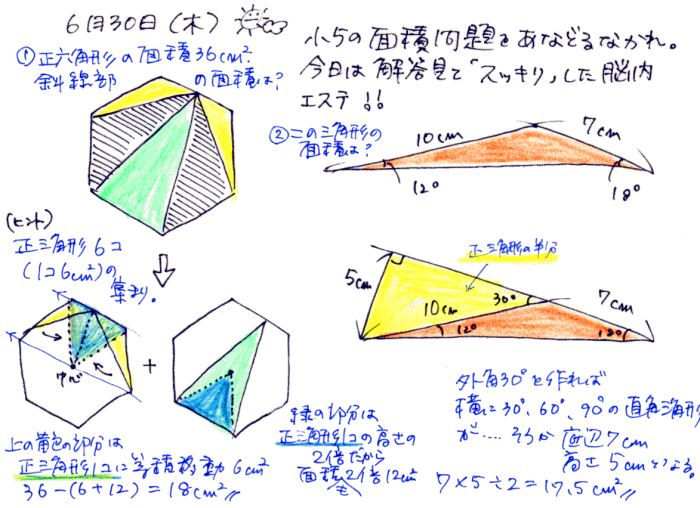 6月30日(木)
小5の面積問題をあなどるなかれ。
今日は解答見て「スッキリ」した脳内
エステ!!
①正六角形の面積36cm²
斜線部の面積は?
②この三角形の
面積は?
10cm
7cm
12°
18°
(ヒント)
正三角形6コ
(1コ6cm²)の
集まり。
+
正三角形の半分
5cm
10cm
30°
7cm
12°
18°
上の黄色の部分は
正三角形1コに等積移動6cm²
36-(6+12)=18cm²
緑の部分は
正三角形1コの高さの
2倍だから
面積も2倍12cm²
外角30°を作れば
横に30°、60°、90°の直角三角形
が…. そうか 底辺7cm
高さ5cmとなる。
7×5÷2=17.5cm²